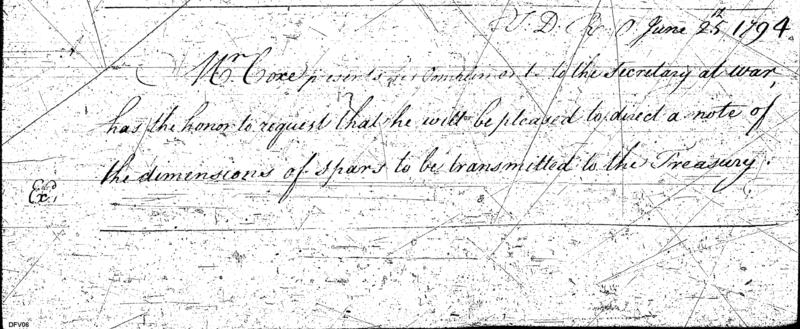 T. D. R. O June 25th 1794.
Mr Coxe presents his Compliments to the Secretary at war,
has the honor to request that he will be pleased to direct a note of
the dimensions of spars to be transmitted to the Treasury.
Exd.
DFV06